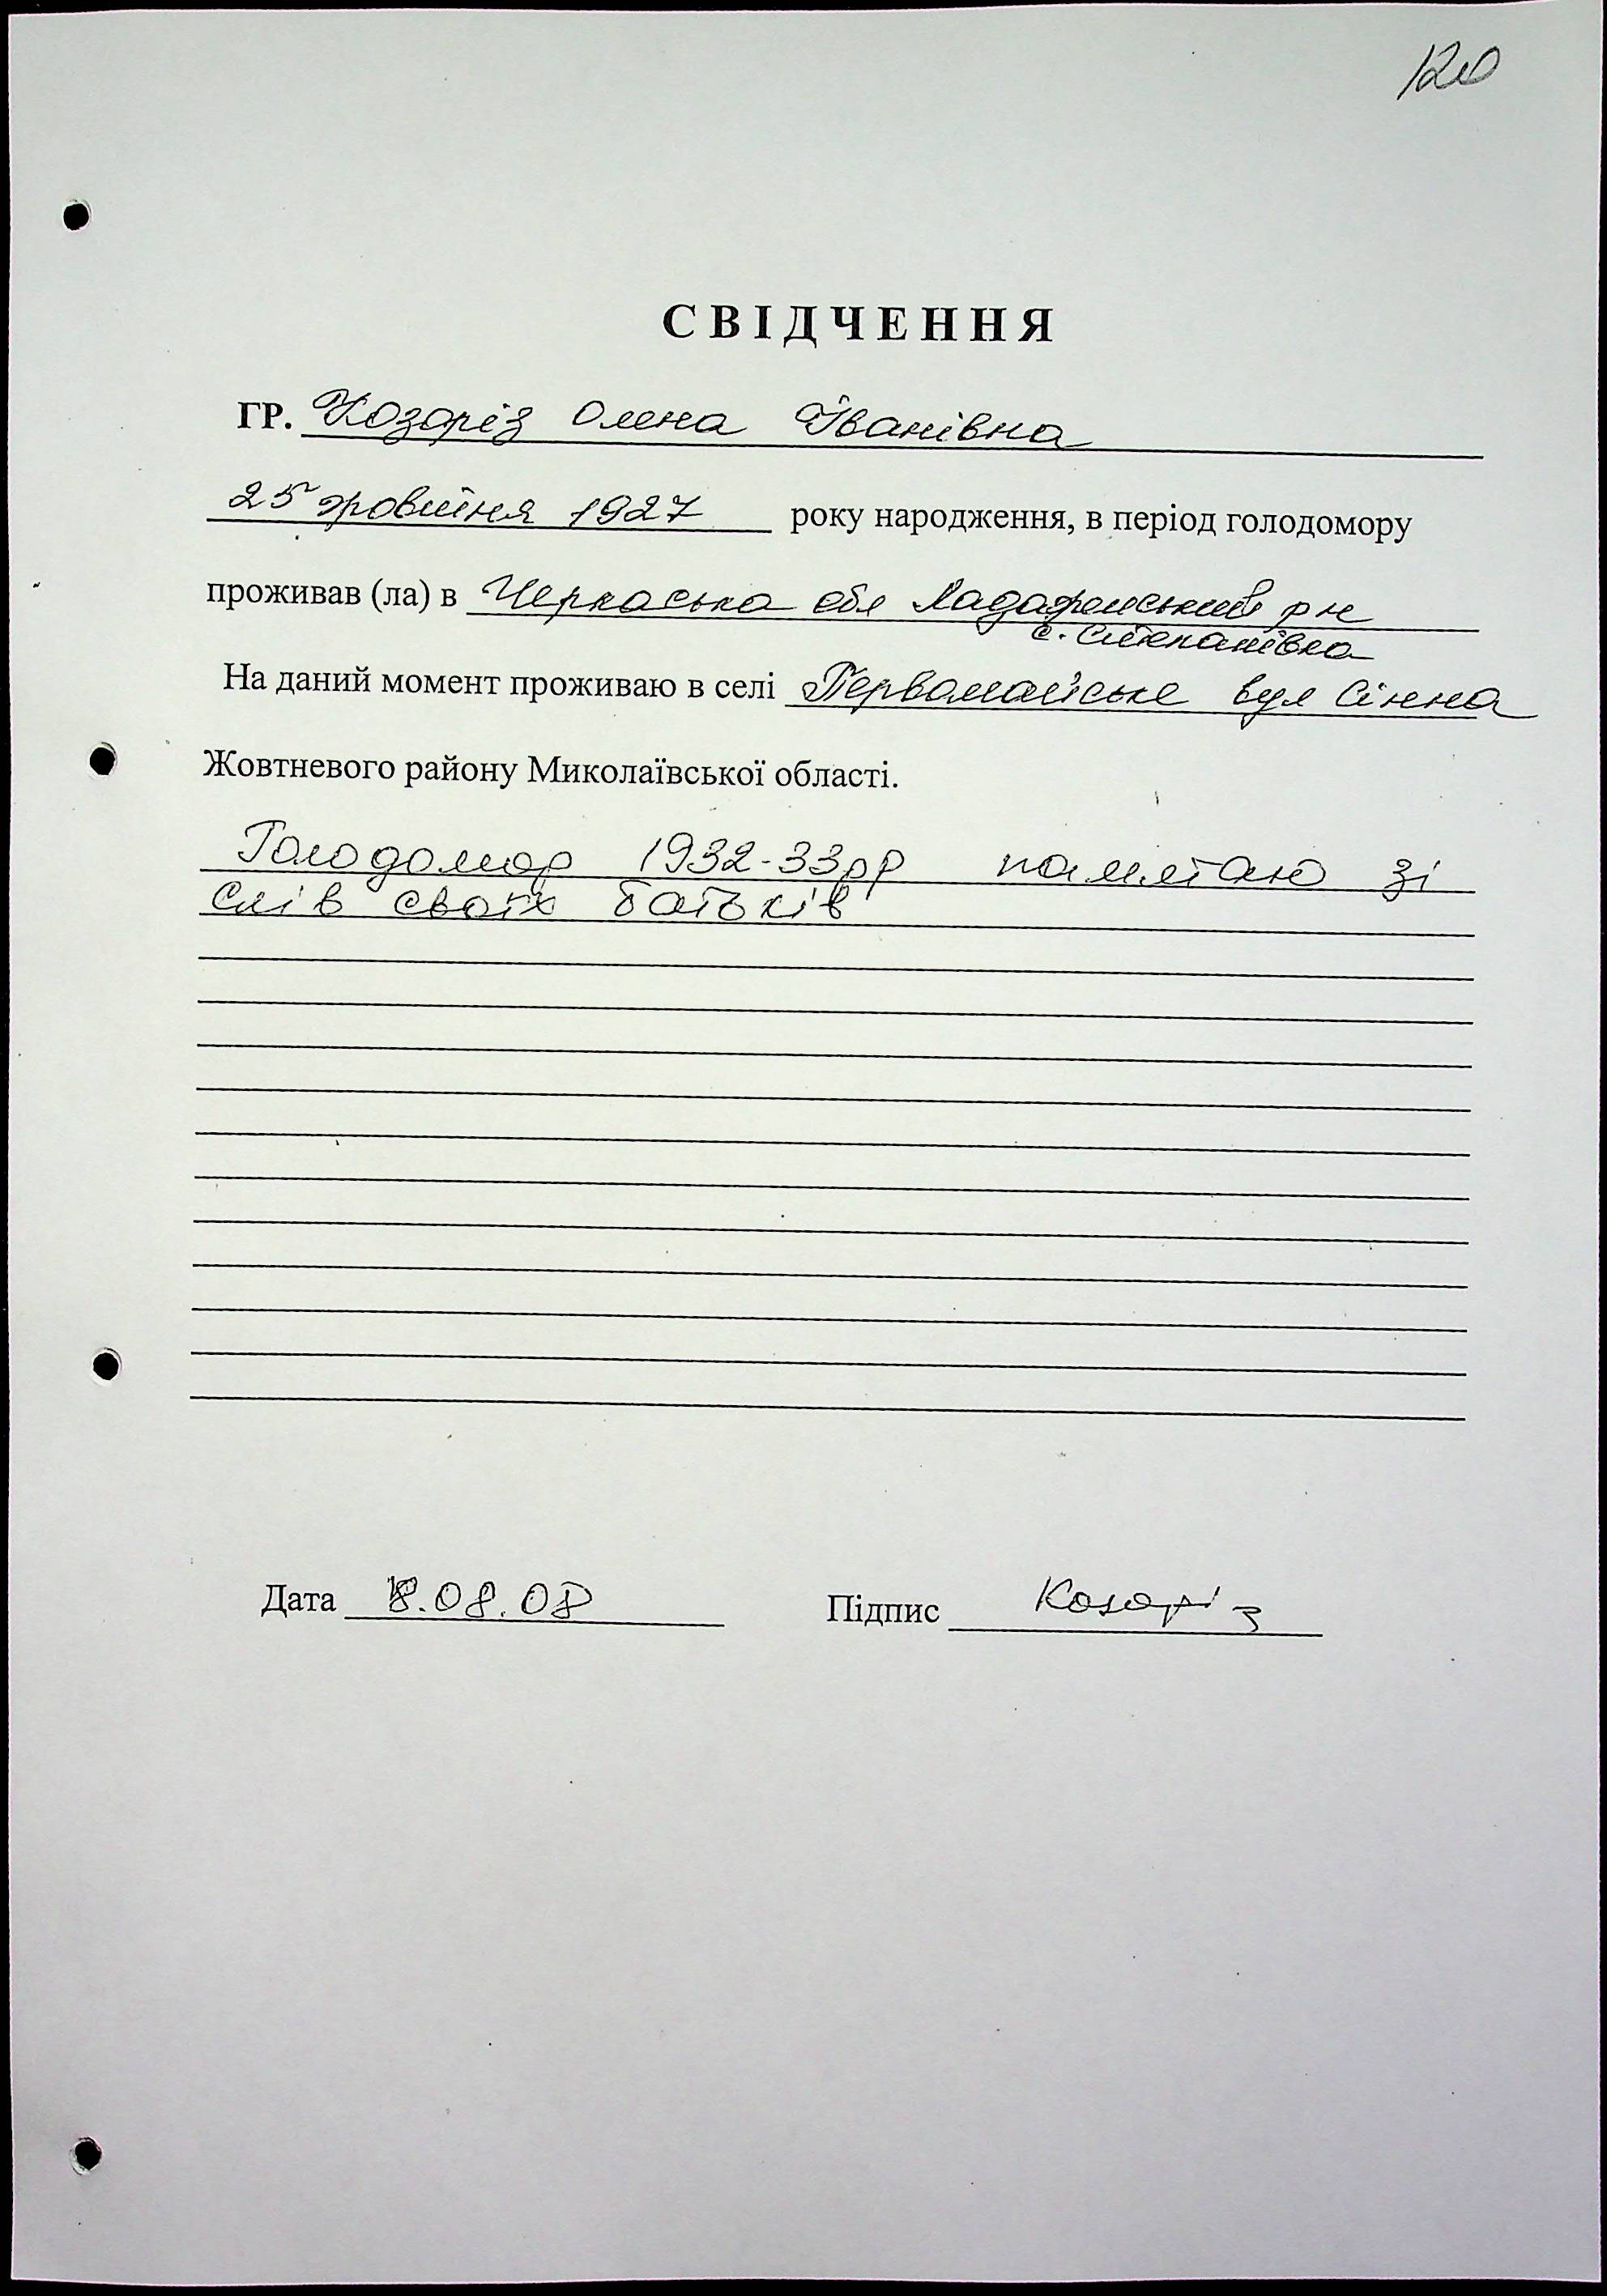 120
СВІДЧЕННЯ
ГР. Козоріз Олена Іванівна
25 жовтня 1927 року народження, в період голодомору
проживав (ла) в Черкаська обл р н
с. Степанівка
На даний момент проживаю в селі Первомайське вул Сінна
Жовтневого району Миколаївської області.
Голодомор 1932-33рр пам'ятаю зі
слів своїх батьків
Дата 8.08.08 Підпис Козоріз